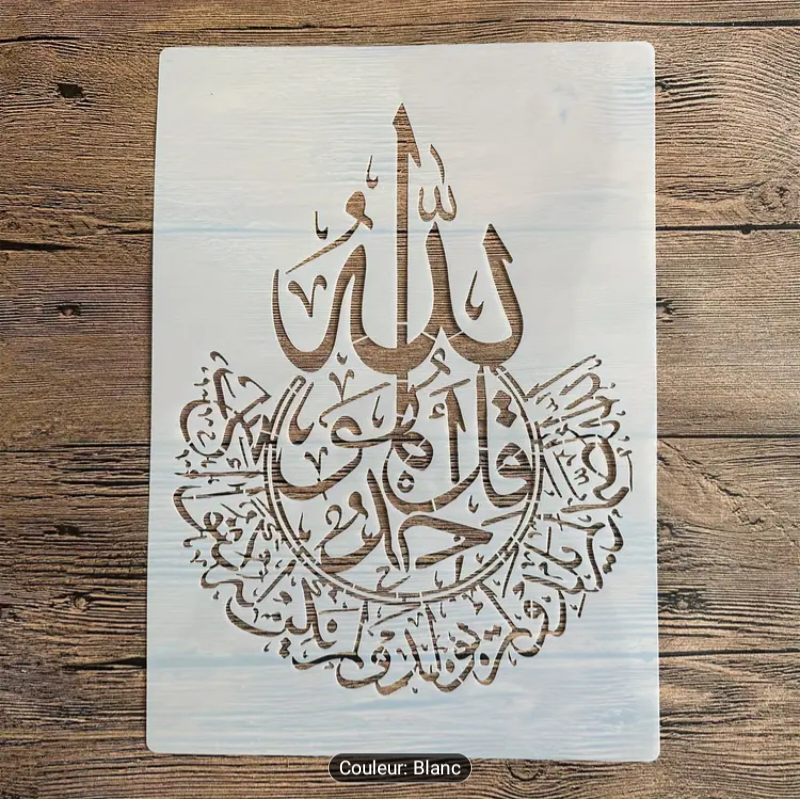 قل هو الله أحد
الله الصمد لم يلد ولم يولد ولم يكن له كفوا أحد
Couleur: Blanc